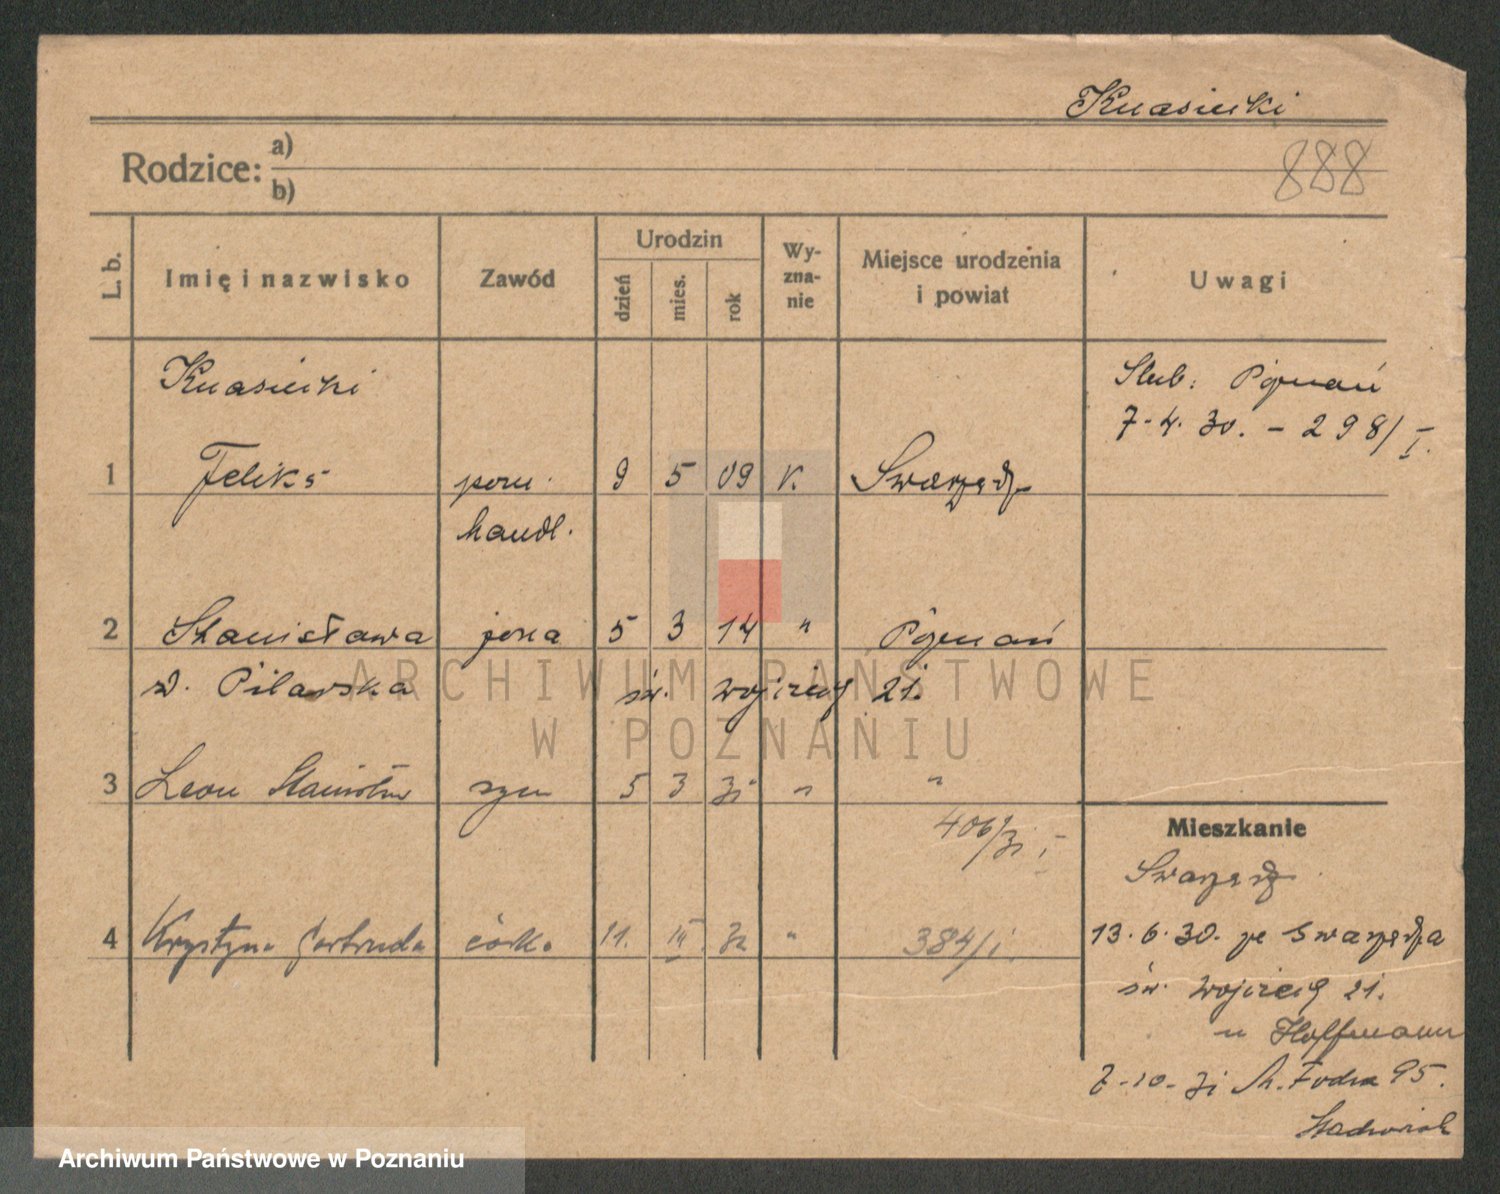 Knasiecki
888
Rodzice: a)
b)
L. b. Imię i nazwisko Zawód Urodzin dzień mies. rok Wyznanie Miejsce urodzenia i powiat Uwagi
Knasiecki
Ślub: Poznań
7.4.30. - 298/I.
1 Feliks pom. 9 5 09 k. Swarzędz
handl.
2 Stanisława żona 5 3 14 " Poznań
z d. Pilarska św. Wojciech 21.
3 Leon Stanisław syn 5 3 31 " "
406/31 I
Mieszkanie
Swarzędz
4 Krystyna Gertruda córka 11. IV 32 " 384/I.
13.6.30. ze Swarzędza
św. Wojciech 21.
u Hoffmann
7-10-31 Fodra 95.
ARCHIWUM PAŃSTWOWE
W POZNANIU
Archiwum Państwowe w Poznaniu